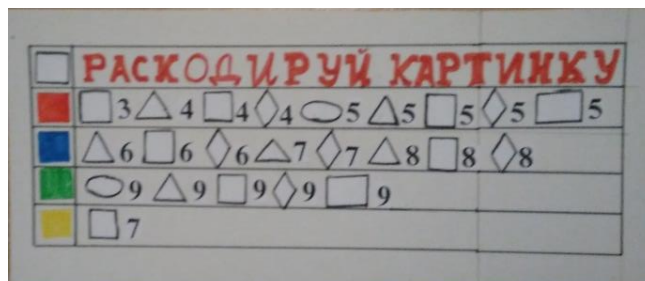 РАСКОДИРУЙ КАРТИНКУ
3 4 4 4 5 5 5 5 5
6 6 6 7 7 8 8 8
9 9 9 9 9
7